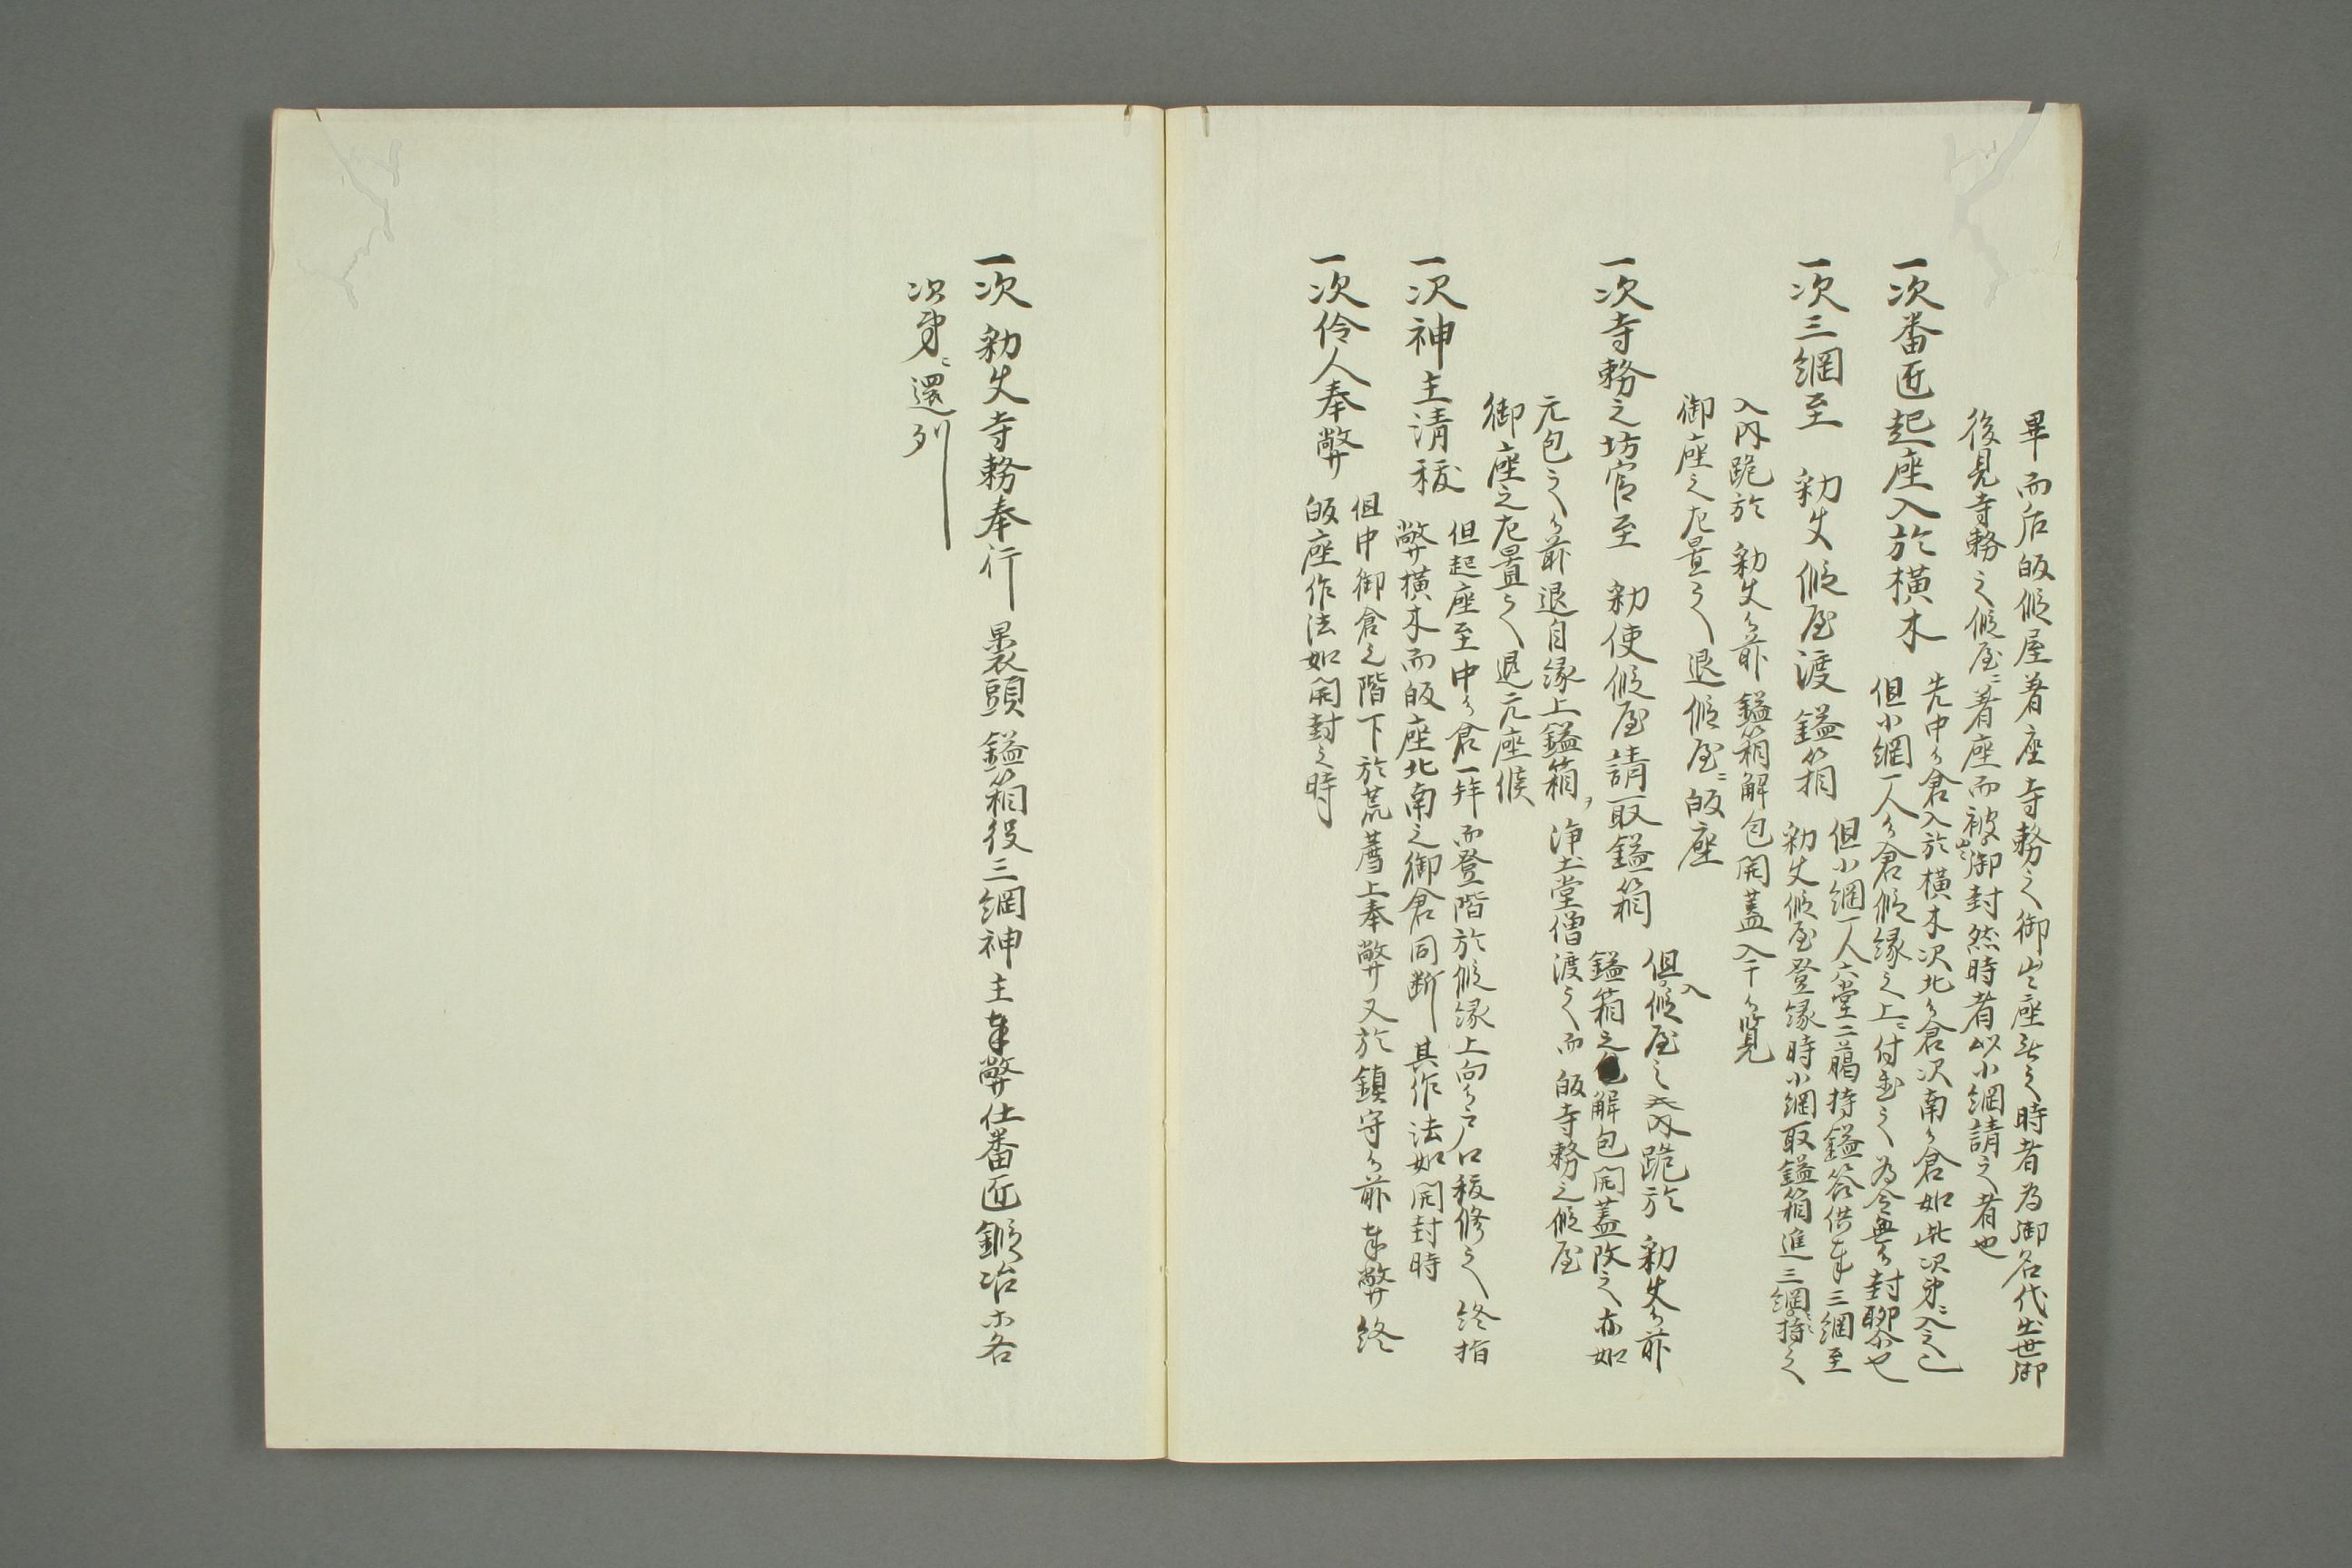 畢而后皈假屋着座寺務之御出座無之時者為御名代出世御
後見寺務之假屋ニ着座而被出御封然時者以小綱請之者也
一次番匠起座入於横木
先中ノ倉入於横木次北ノ倉次南ノ倉如此次第ニ入之也
但小綱一人ノ倉假縁之上ニ付出之為令無ノ封聊尓也
一次三綱至　勅使假屋渡鎰箱
但小綱一人六堂二﨟持鎰筥供奉三綱至
勅使假屋登縁時小綱取鎰箱進三綱ニ持之
入内跪於　勅使ノ前鎰箱解包開蓋入于ノ覧
御座之左置之退假屋ニ皈座
一次寺務之坊官至　勅使假屋請取鎰箱
但入假屋之内跪於　勅使ノ前
鎰箱之包解包開蓋改之亦如
元包之ノ前退自縁上鎰箱ヲ浄土堂僧渡之而皈寺務之假屋
御座之左置之退元座候
一次神主清秡
但起座至中ノ倉一拝而登階於假縁上向ノ戸口秡修之終指
幣横木而皈座北南之御倉同断其作法如開封時
一次伶人奉幣
但中御倉之階下於荒薦上奉幣又於鎮守ノ前奉幣終
皈座作法如開封之時
一次　勅使寺務奉行　裹頭鎰箱役三綱神主奉幣仕番匠鍛冶ホ各
次第ニ還列